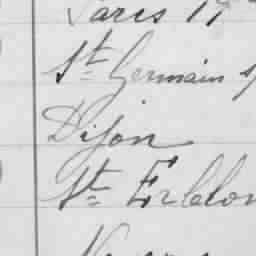 Paris 19
St Germain s/
Dijon
St Erblon